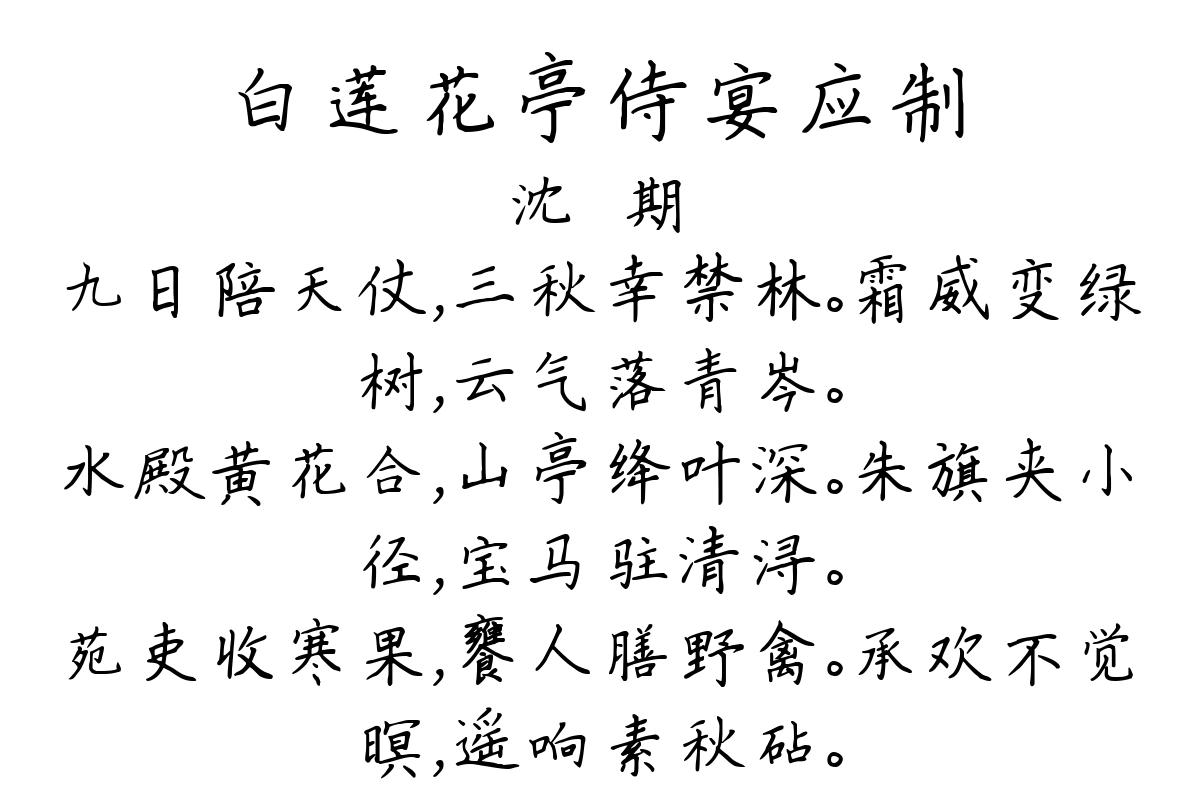 白莲花亭侍宴应制
沈 期
九日陪天仗,三秋幸禁林。霜威变绿
树,云气落青岑。
水殿黄花合,山亭绛叶深。朱旗夹小
径,宝马驻清浔。
苑吏收寒果,饔人膳野禽。承欢不觉
暝,遥响素秋砧。